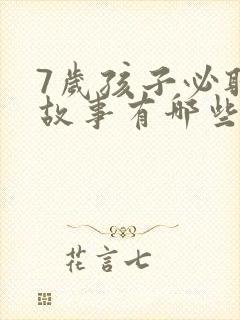 7岁孩子必
故事有哪些
花言七